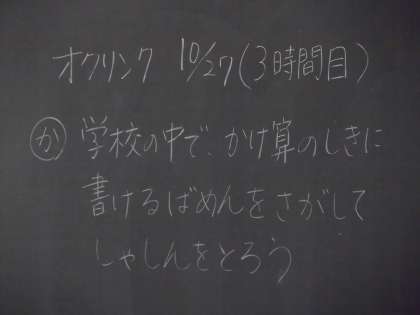 オクリンク 10/27(3時間目)
か 学校の中で、かけ算のしきに
書けるばめんをさがして
しゃしんをとろう